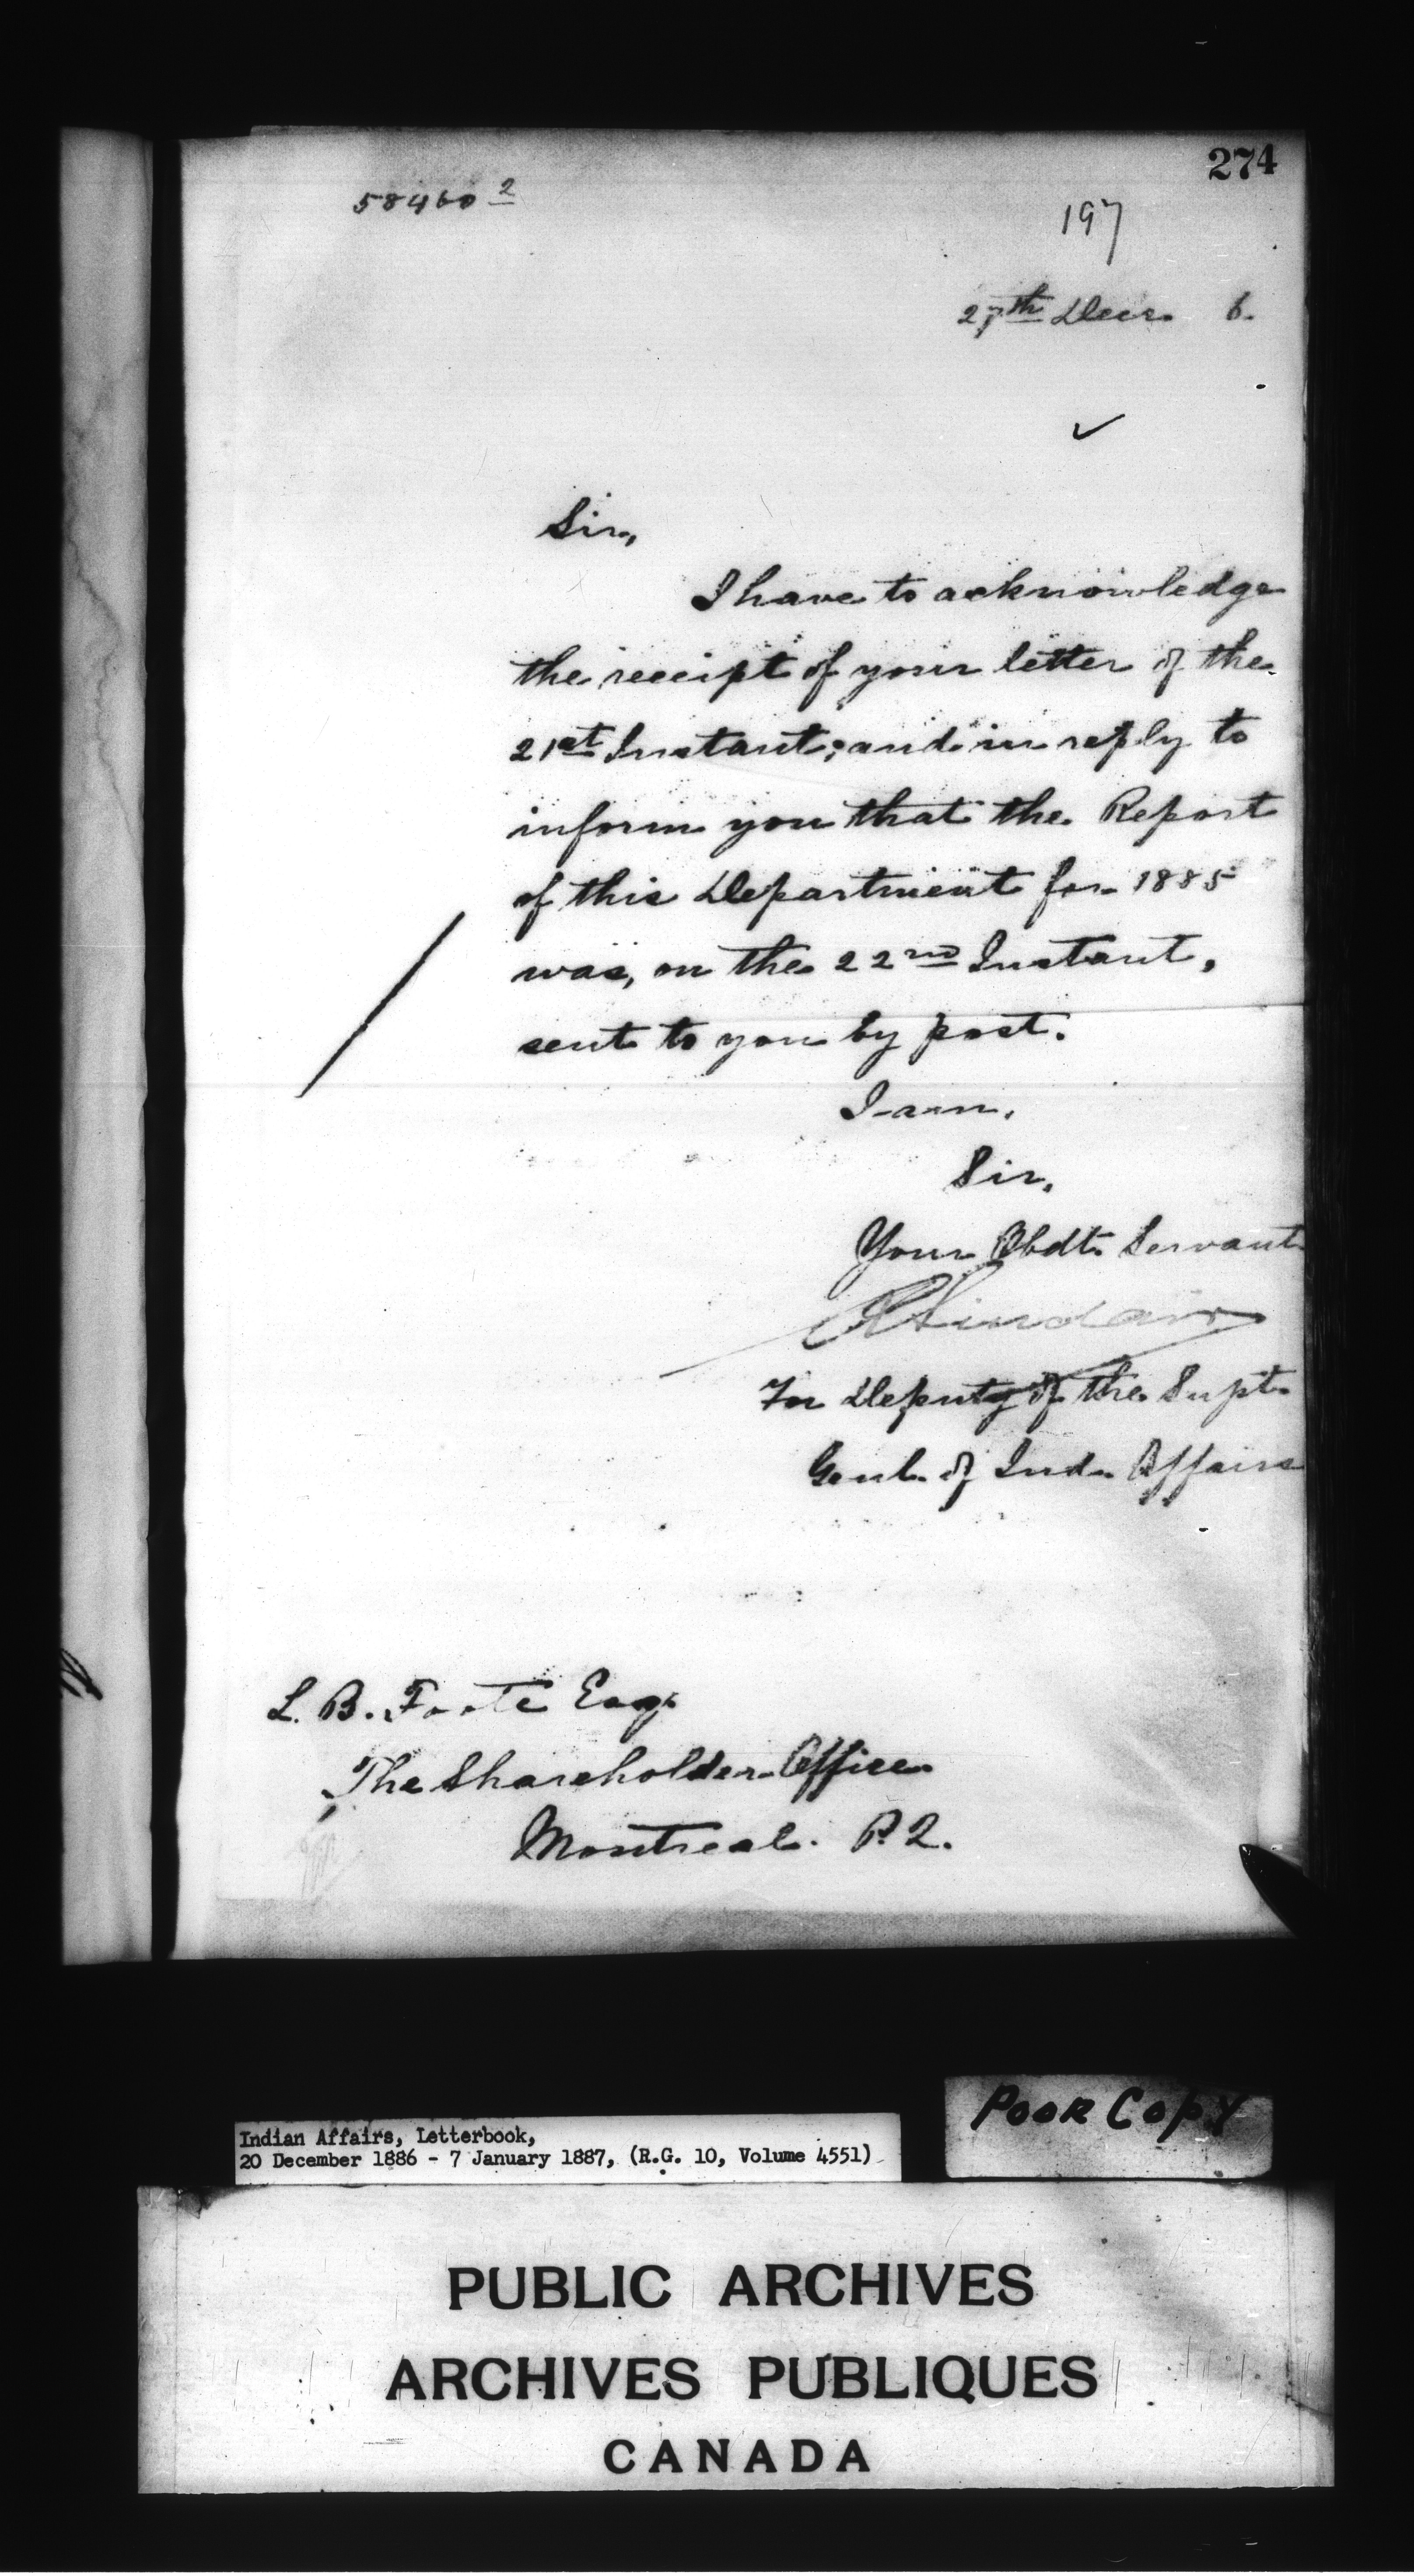 274
58460 2
197
27th Decr. 6.
Sir,
I have to acknowledge
the receipt of your letter of the
21st Instant; and in reply to
inform you that the Report
of this Department for 1885
was, on the 22nd Instant,
sent to you by post.
I am,
Sir,
Your Obdt. Servant
R Sinclair
For Deputy of the Supt.
Genl. of Ind. Affairs
L. B. Foote Esq.
The Shareholder Office
Montreal. P.Q.
Poor Copy
Indian Affairs, Letterbook,
20 December 1886 - 7 January 1887, (R.G. 10, Volume 4551)
PUBLIC ARCHIVES
ARCHIVES PUBLIQUES
CANADA